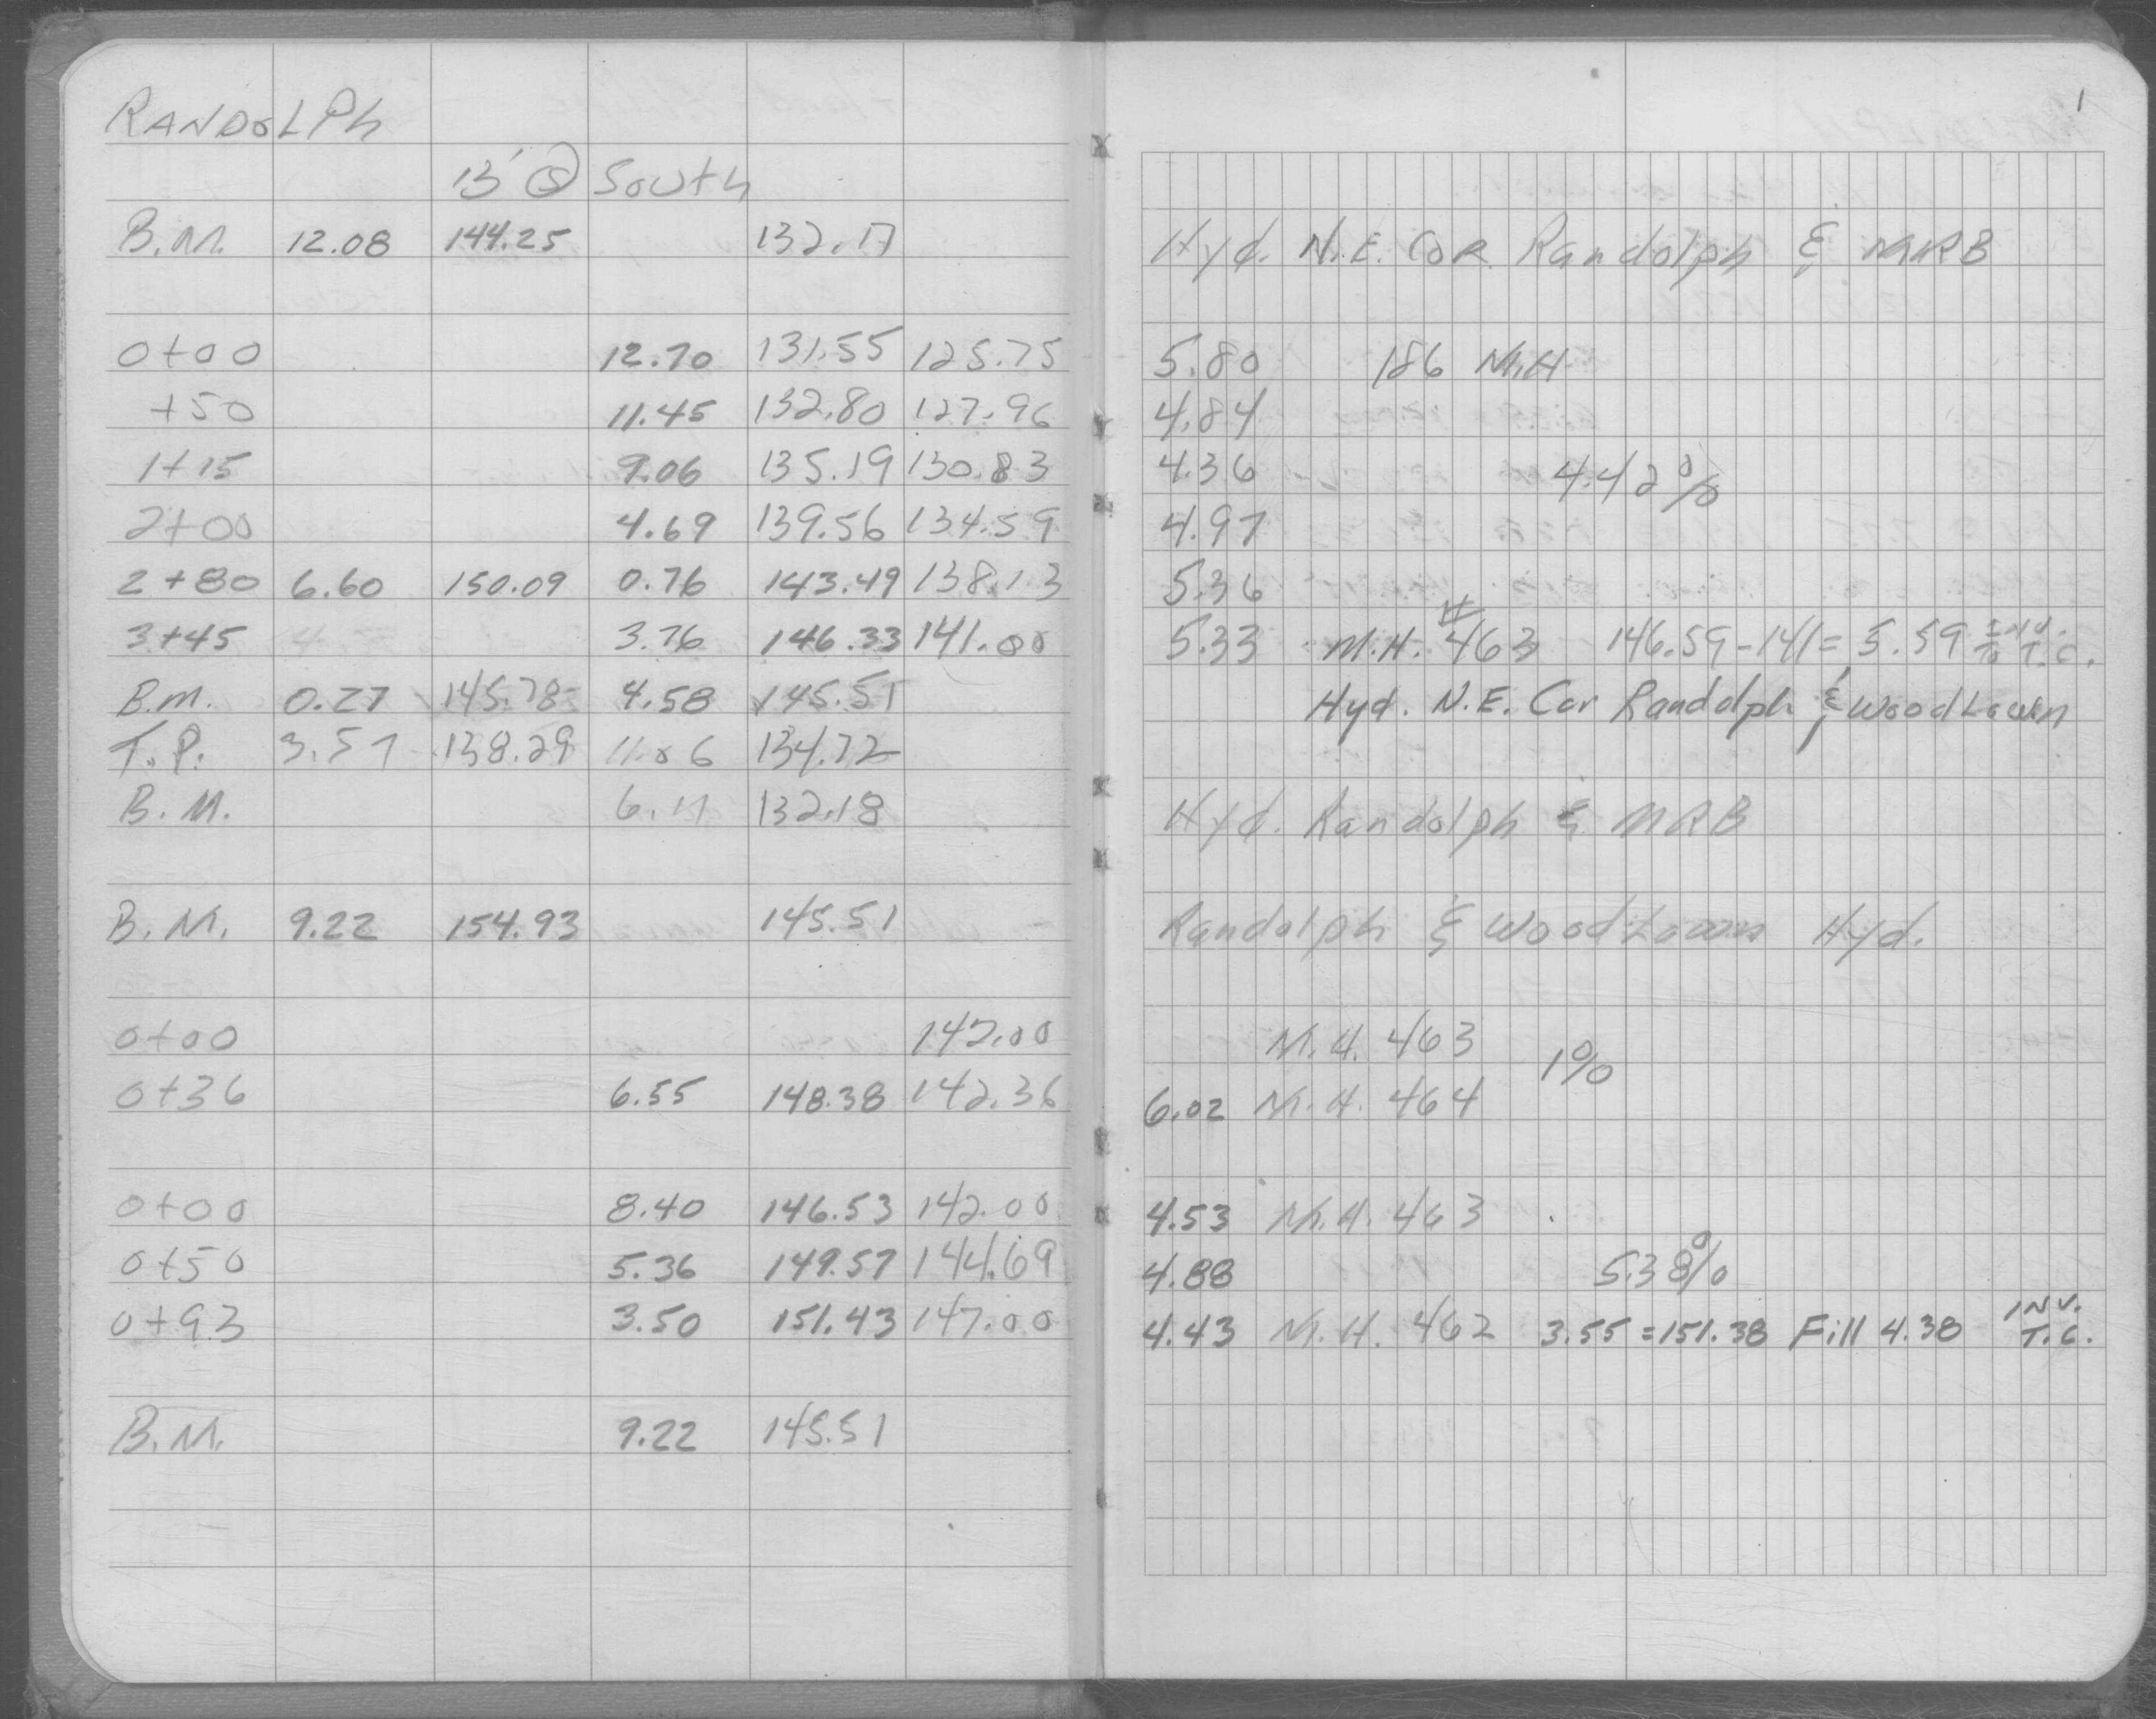 1
RANDOLPh
13' @ South
B.M. 12.08 144.25 132.17 Hyd. N.E. COR. Randolph & MRB
0+00 12.70 131.55 125.75 5.80 186 M.H
+50 11.45 132.80 127.96 4.84
1+15 9.06 135.19 130.83 4.36 4.42%
2+00 4.69 139.56 134.59 4.97
2+80 6.60 150.09 0.76 143.49 138.13 5.36
3+45 3.76 146.33 141.00 5.33 M.H. #463 146.59-141= 5.59 INV. To T.C.
B.M. 0.27 145.78 4.58 145.51 Hyd. N.E. Cor Randolph & WoodLawn
T.P. 3.57 138.29 11.06 134.72
B.M. 6.11 132.18 Hyd. Randolph & MRB
B.M. 9.22 154.93 145.51 Randolph & WoodLawn Hyd.
0+00 142.00 M.H. 463
1%
0+36 6.55 148.38 142.36 6.02 M.H. 464
0+00 8.40 146.53 142.00 4.53 M.H. 463
0+50 5.36 149.57 144.69 4.88 5.38%
0+93 3.50 151.43 147.00 4.43 M.H. 462 3.55=151.38 Fill 4.38 INV. T.C.
B.M. 9.22 145.51